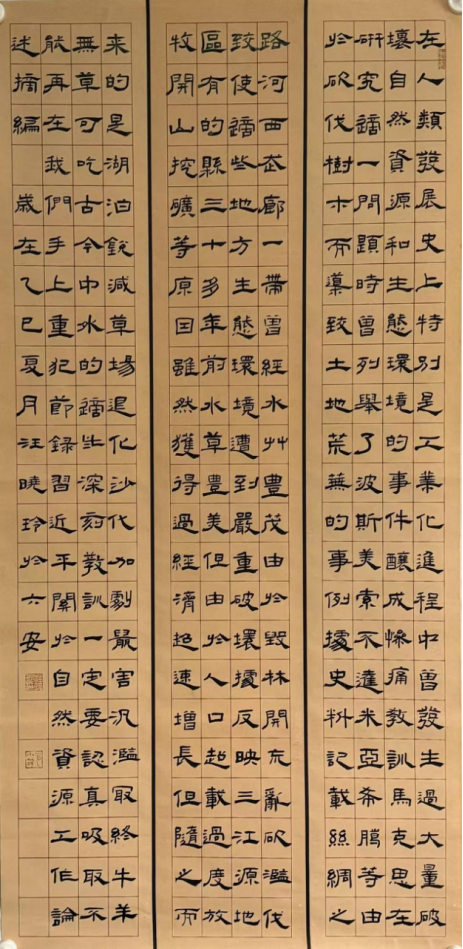 在人類發展史上特別是工業化進程中曾發生過大量破
壞自然資源和生態環境的事件釀成慘痛教訓馬克思在
研究這一問題時曾列舉了波斯美索不達米亞希臘等由
於砍伐樹木而導致土地荒蕪的事例據史料記載絲綢之
路河西走廊一帶曾經水艸豐茂由於毀林開荒亂砍濫伐
致使這些地方生態環境遭到嚴重破壞據反映三江源地
區有的縣三十多年前水草豐美但由於人口超載過度放
牧開山挖礦等原因雖然獲得過經濟超速增長但隨之而
来的是湖泊銳減草場退化沙代加劇鼠害汎濫取終牛羊
無草可吃古今中水的這些深刻教訓一定要認真吸取不
能再在我們手上重犯節錄習近平關於自然資源工作論
述摘編 歲在乙巳夏月汪曉玲於六安